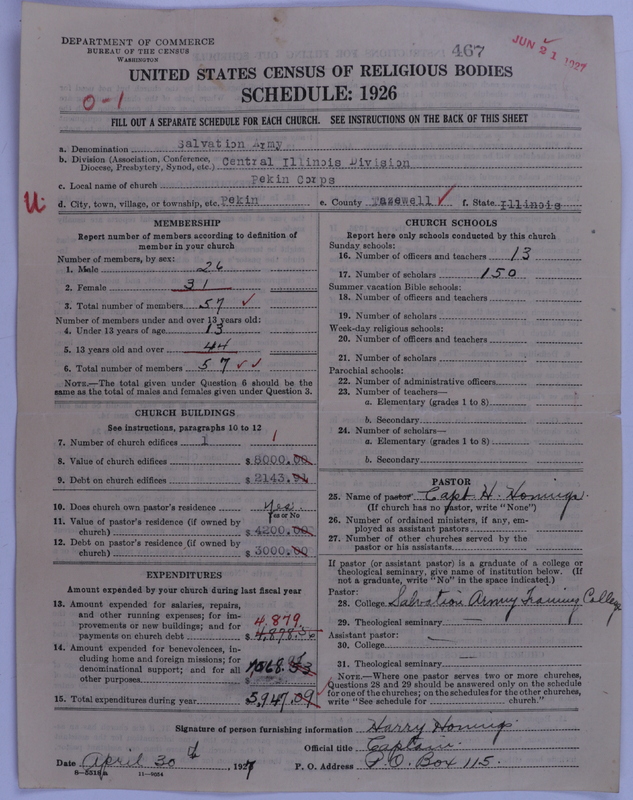 DEPARTMENT OF COMMERCE
BUREAU OF THE CENSUS
WASHINGTON
467
JUN 21 1927
UNITED STATES CENSUS OF RELIGIOUS BODIES
SCHEDULE: 1926
0-1
FILL OUT A SEPARATE SCHEDULE FOR EACH CHURCH. SEE INSTRUCTIONS ON THE BACK OF THIS SHEET
a. Denomination Salvation Army
b. Division (Association, Conference, Diocese, Presbytery, Synod, etc.) Central Illinois Division
c. Local name of church Pekin Corps
U.
d. City, town, village, or township, etc. Pekin e. County Tazewell f. State Illinois
MEMBERSHIP
Report number of members according to definition of
member in your church
Number of members, by sex:
1. Male 26
2. Female 31
3. Total number of members 57
Number of members under and over 13 years old:
4. Under 13 years of age 13
5. 13 years old and over 44
6. Total number of members 57
NOTE.—The total given under Question 6 should be the
same as the total of males and females given under Question 3.
CHURCH BUILDINGS
See instructions, paragraphs 10 to 12
7. Number of church edifices 1 1
8. Value of church edifices $ 8000.00
9. Debt on church edifices $ 2143.
10. Does church own pastor's residence Yes.
Yes or No
11. Value of pastor's residence (if owned by
church) $ 4200.00
12. Debt on pastor's residence (if owned by
church) $ 3000.00
EXPENDITURES
Amount expended by your church during last fiscal year
13. Amount expended for salaries, repairs,
and other running expenses; for im-
provements or new buildings; and for 4,879
payments on church debt $ 4,878.56
14. Amount expended for benevolences, in-
cluding home and foreign missions; for
denominational support; and for all 1068.
other purposes $
15. Total expenditures during year $ 5,947.09
CHURCH SCHOOLS
Report here only schools conducted by this church
Sunday schools:
16. Number of officers and teachers 13
17. Number of scholars 150
Summer vacation Bible schools:
18. Number of officers and teachers
19. Number of scholars
Week-day religious schools:
20. Number of officers and teachers
21. Number of scholars
Parochial schools:
22. Number of administrative officers
23. Number of teachers—
a. Elementary (grades 1 to 8)
b. Secondary
24. Number of scholars—
a. Elementary (grades 1 to 8)
b. Secondary
PASTOR
25. Name of pastor Capt H. Honings.
(If church has no pastor, write "None")
26. Number of ordained ministers, if any, em-
ployed as assistant pastors
27. Number of other churches served by the
pastor or his assistants
If pastor (or assistant pastor) is a graduate of a college or
theological seminary, give name of institution below. (If
not a graduate, write "No" in the space indicated.)
Pastor:
28. College Salvation Army Training College
29. Theological seminary —
Assistant pastor:
30. College —
31. Theological seminary —
NOTE.—Where one pastor serves two or more churches,
Questions 28 and 29 should be answered only on the schedule
for one of the churches; on the schedules for the other churches,
write "See schedule for church."
Signature of person furnishing information Harry Honings.
Official title Captain.
Date April 30th, 1927 P. O. Address P.O. Box 115.
8-5519a 11-9054